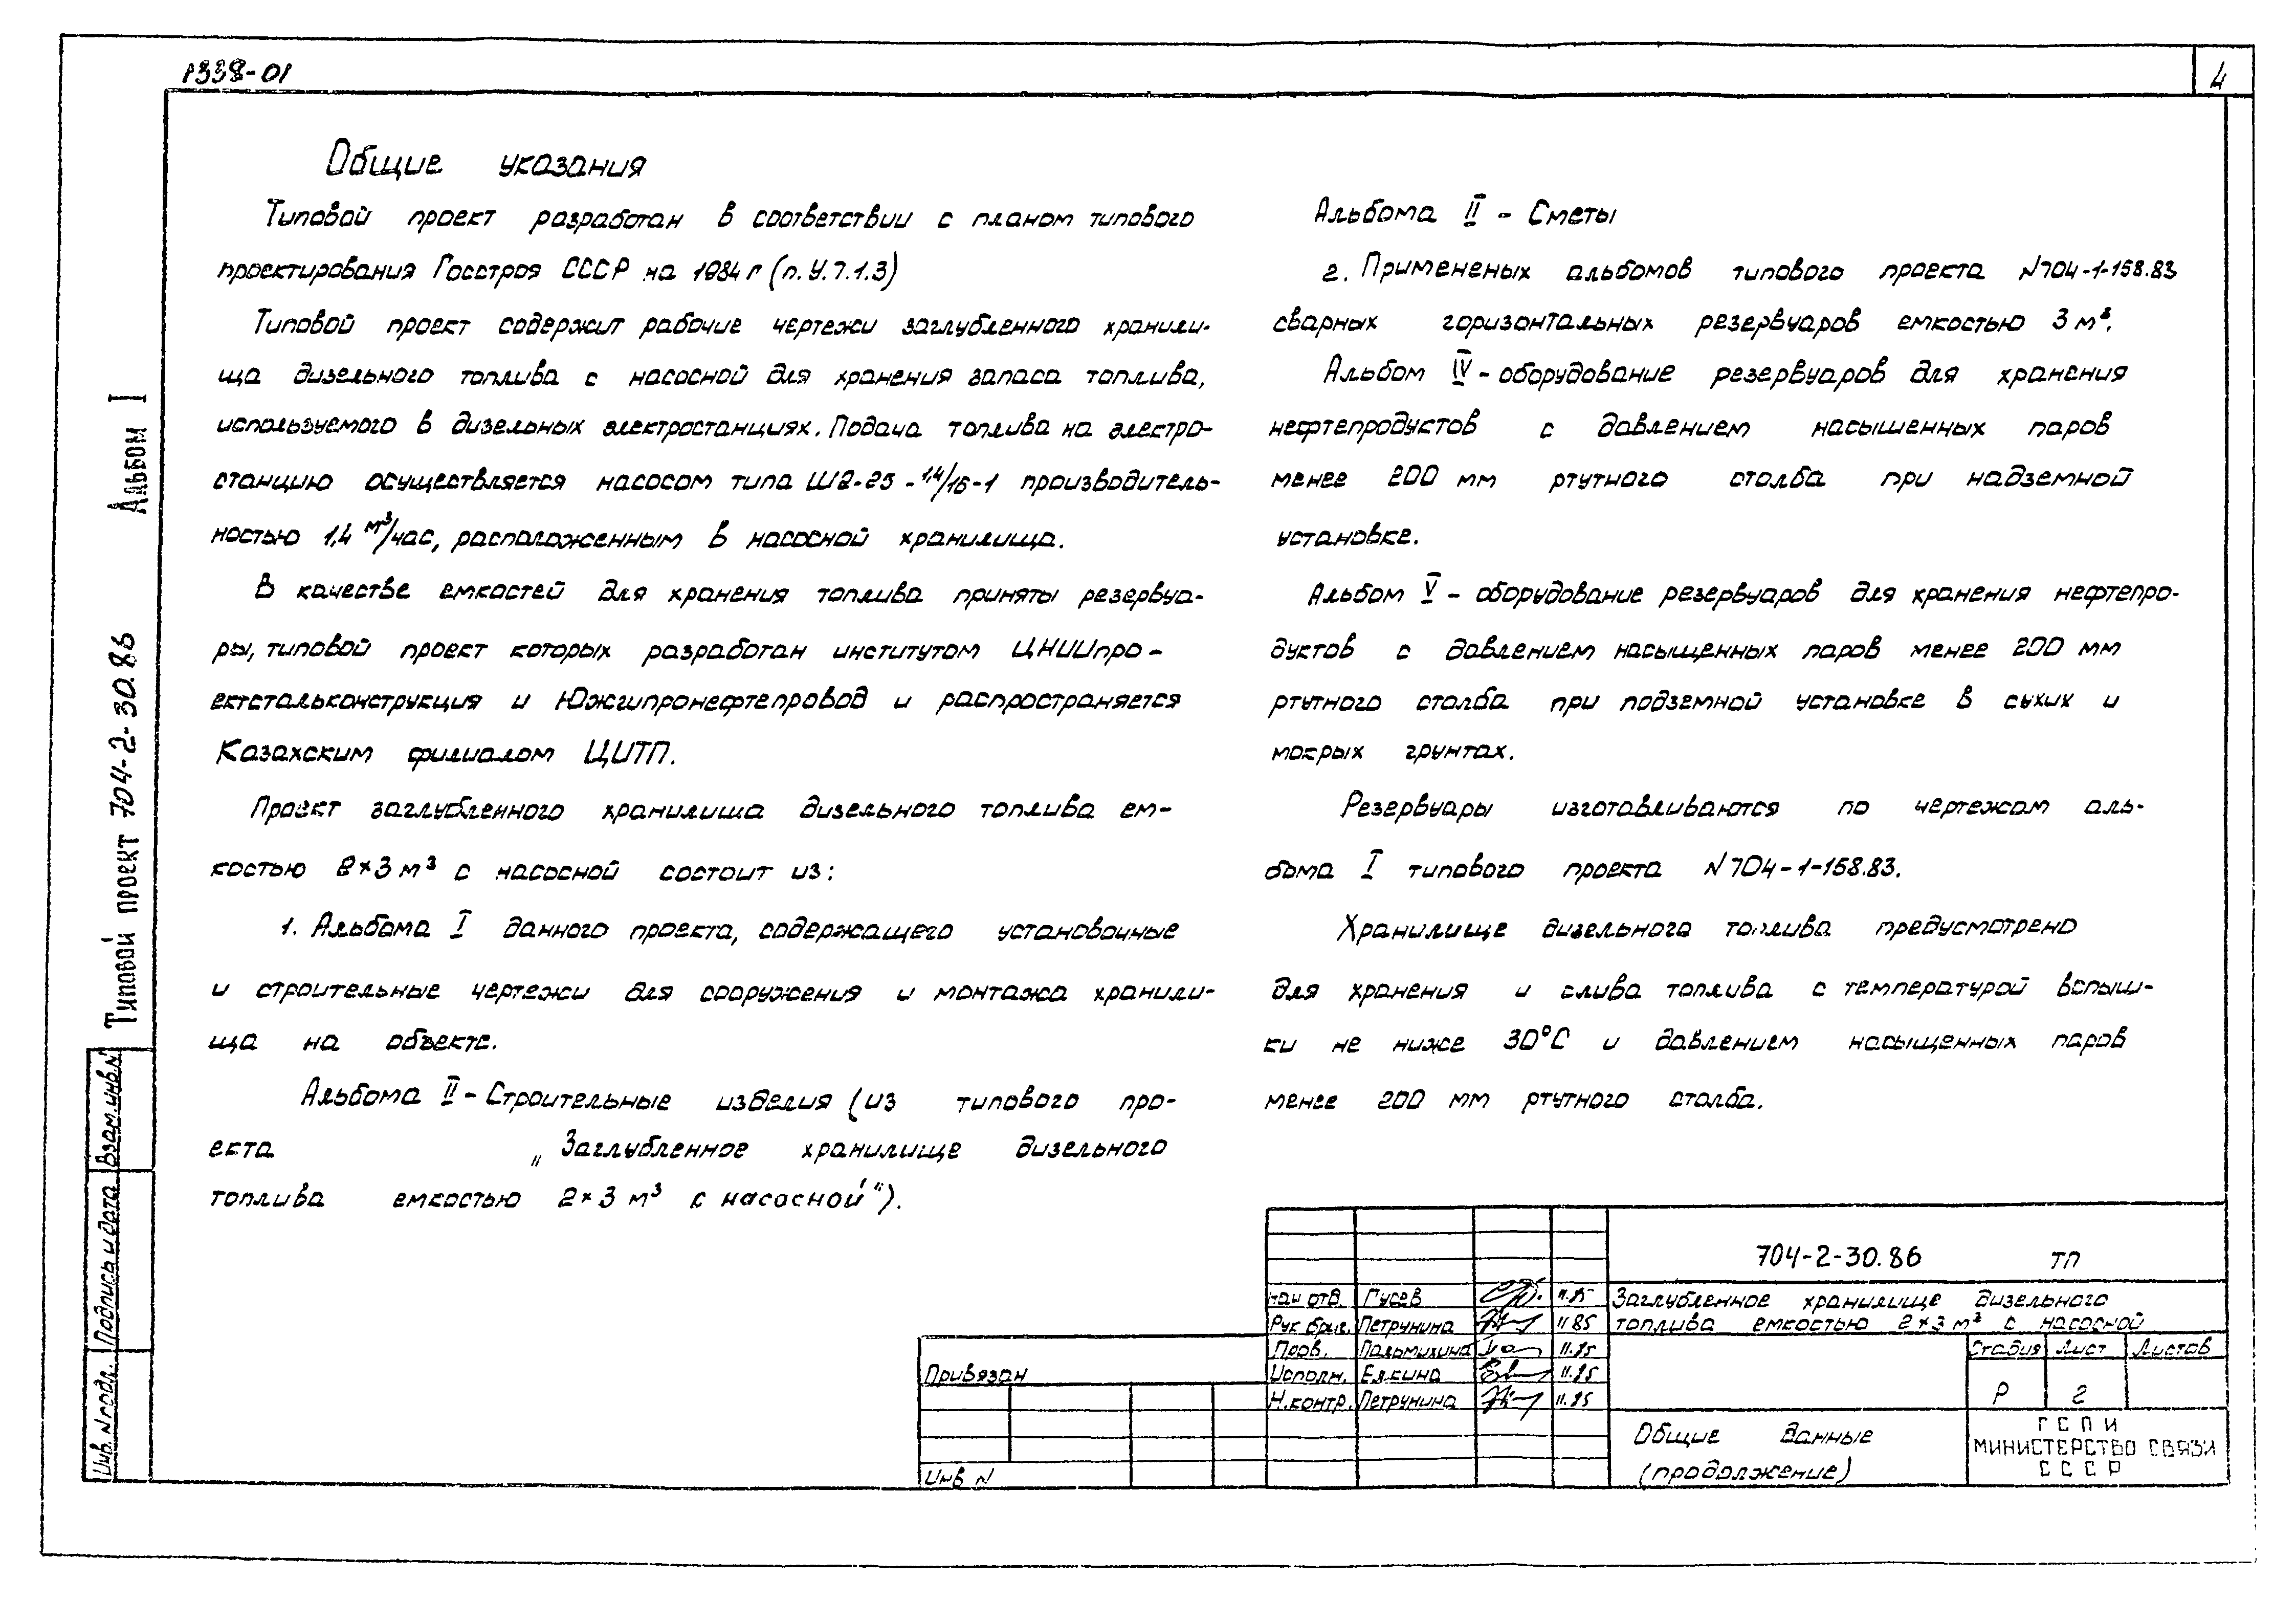 1338-01
4
Общие указания
Типовой проект разработан в соответствии с планом типового
проектирования Госстроя СССР на 1984 г (п. У.7.1.3)
Типовой проект содержит рабочие чертежи заглубленного хранили-
ща дизельного топлива с насосной для хранения запаса топлива,
используемого в дизельных электростанциях. Подача топлива на электро-
станцию осуществляется насосом типа Ш2-25-1,4/16-1 производитель-
ностью 1,4 м³/час, расположенным в насосной хранилища.
В качестве емкостей для хранения топлива приняты резервуа-
ры, типовой проект которых разработан институтом ЦНИИпро-
ектстальконструкция и Южгипронефтепровод и распространяется
Казахским филиалом ЦИТП.
Проект заглубленного хранилища дизельного топлива ем-
костью 2×3 м³ с насосной состоит из:
1. Альбома I данного проекта, содержащего установочные
и строительные чертежи для сооружения и монтажа хранили-
ща на объекте.
Альбома II – Строительные изделия (из типового про-
екта „Заглубленное хранилище дизельного
топлива емкостью 2×3 м³ с насосной").
Альбома II - Сметы
2. Примененых альбомов типового проекта N704-1-158.83
сварных горизонтальных резервуаров емкостью 3 м³.
Альбом IV - оборудование резервуаров для хранения
нефтепродуктов с давлением насышенных паров
менее 200 мм ртутного столба при надземной
установке.
Альбом V – оборудование резервуаров для хранения нефтепро-
дуктов с давлением насыщенных паров менее 200 мм
ртутного столба при подземной установке в сухих и
мокрых грунтах.
Резервуары изготавливаются по чертежам аль-
бома I типового проекта N704-1-158.83.
Хранилище дизельного топлива предусмотрено
для хранения и слива топлива с температурой вспыш-
ки не ниже 30°С и давлением насыщенных паров
менее 200 мм ртутного столба.
Альбом I
Типовой проект 704-2-30.86
Взам. инв. N
Подпись и дата
Инв. N подл.
704-2-30.86 ТП
Нач отд. Гусев 11.85
Рук бриг. Петрунина 11 85
Пров. Пальмихина 11.85
Исполн. Елкина 11.85
Н.контр. Петрунина 11.85
Заглубленное хранилище дизельного
топлива емкостью 2×3 м³ с насосной
Стадия Лист Листов
Р 2
Общие данные
(продолжение)
ГСПИ
МИНИСТЕРСТВО СВЯЗИ
СССР
Привязан
Инв N